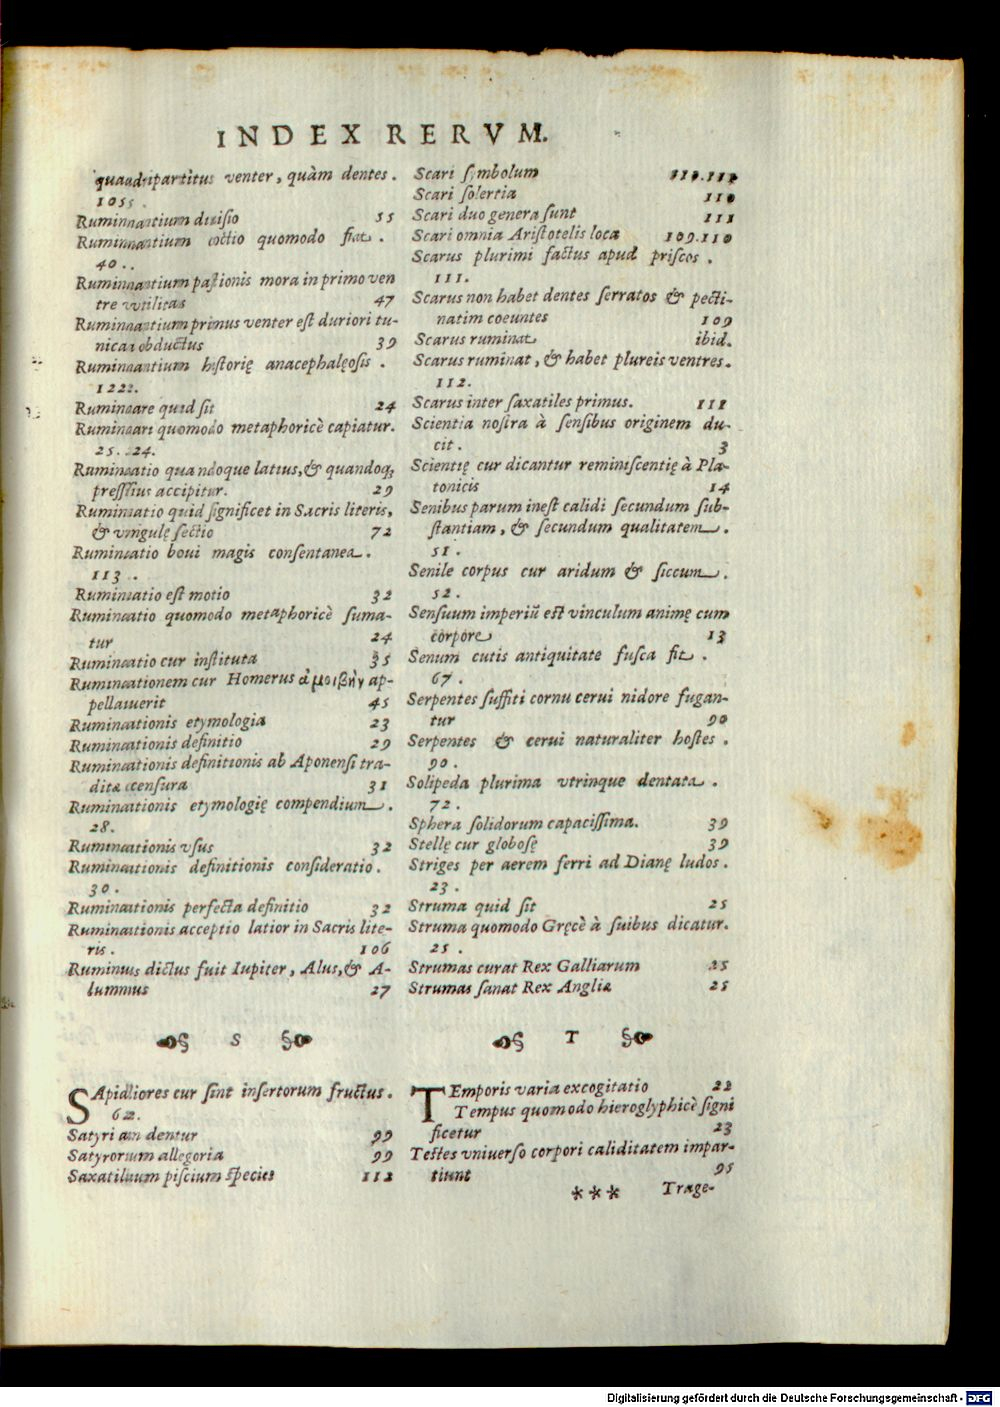 INDEX RERVM.
quadripartitus venter, quàm dentes.
105.
Ruminantium diuisio 55
Ruminantium coctio quomodo fiat.
40.
Ruminantium pastionis mora in primo ven
tre vtilitas 47
Ruminantium primus venter est duriori tu-
nica obductus 39
Ruminantium historię anacephalęosis.
122.
Ruminare quid sit 24
Ruminari quomodo metaphoricè capiatur.
25. 24.
Ruminatio quandoque latius, & quandoq;
pressius accipitur. 29
Ruminatio quid significet in Sacris literis,
& vngulę sectio 72
Ruminatio boui magis consentanea.
113.
Ruminatio est motio 32
Ruminatio quomodo metaphoricè suma-
tur 24
Ruminatio cur instituta 35
Ruminationem cur Homerus ἀμοιβὴν ap-
pellauerit 45
Ruminationis etymologia 23
Ruminationis definitio 29
Ruminationis definitionis ab Aponensi tra-
dita censura 31
Ruminationis etymologię compendium.
28.
Ruminationis vsus 32
Ruminationis definitionis consideratio.
30.
Ruminationis perfecta definitio 32
Ruminationis acceptio latior in Sacris lite-
ris. 106
Ruminus dictus fuit Iupiter, Alus, & A-
lummus 27
S
SApidiores cur sint insertorum fructus.
62.
Satyri an dentur 99
Satyrorum allegoria 99
Saxatilium piscium species 112
Scari symbolum 110.111
Scari solertia 110
Scari duo genera sunt 111
Scari omnia Aristotelis loca 109.110
Scarus plurimi factus apud priscos.
111.
Scarus non habet dentes serratos & pecti-
natim coeuntes 109
Scarus ruminat ibid.
Scarus ruminat, & habet plureis ventres.
112.
Scarus inter saxatiles primus. 111
Scientia nostra à sensibus originem du-
cit. 3
Scientię cur dicantur reminiscentię à Pla-
tonicis 14
Senibus parum inest calidi secundum sub-
stantiam, & secundum qualitatem.
51.
Senile corpus cur aridum & siccum.
52.
Sensuum imperiū est vinculum animę cum
corpore 13
Senum cutis antiquitate fusca fit.
67.
Serpentes suffiti cornu cerui nidore fugan-
tur 90
Serpentes & cerui naturaliter hostes.
90.
Solipeda plurima vtrinque dentata.
72.
Sphera solidorum capacissima. 39
Stellę cur globosę 39
Striges per aerem ferri ad Dianę ludos.
23.
Struma quid sit 25
Struma quomodo Gręcè à suibus dicatur.
25.
Strumas curat Rex Galliarum 25
Strumas sanat Rex Anglia 25
T
TEmporis varia excogitatio 22
Tempus quomodo hieroglyphicè signi
ficetur 23
Testes vniuerso corpori caliditatem impar-
tiunt 95
*** Trage-
Digitalisierung gefördert durch die Deutsche Forschungsgemeinschaft - DFG